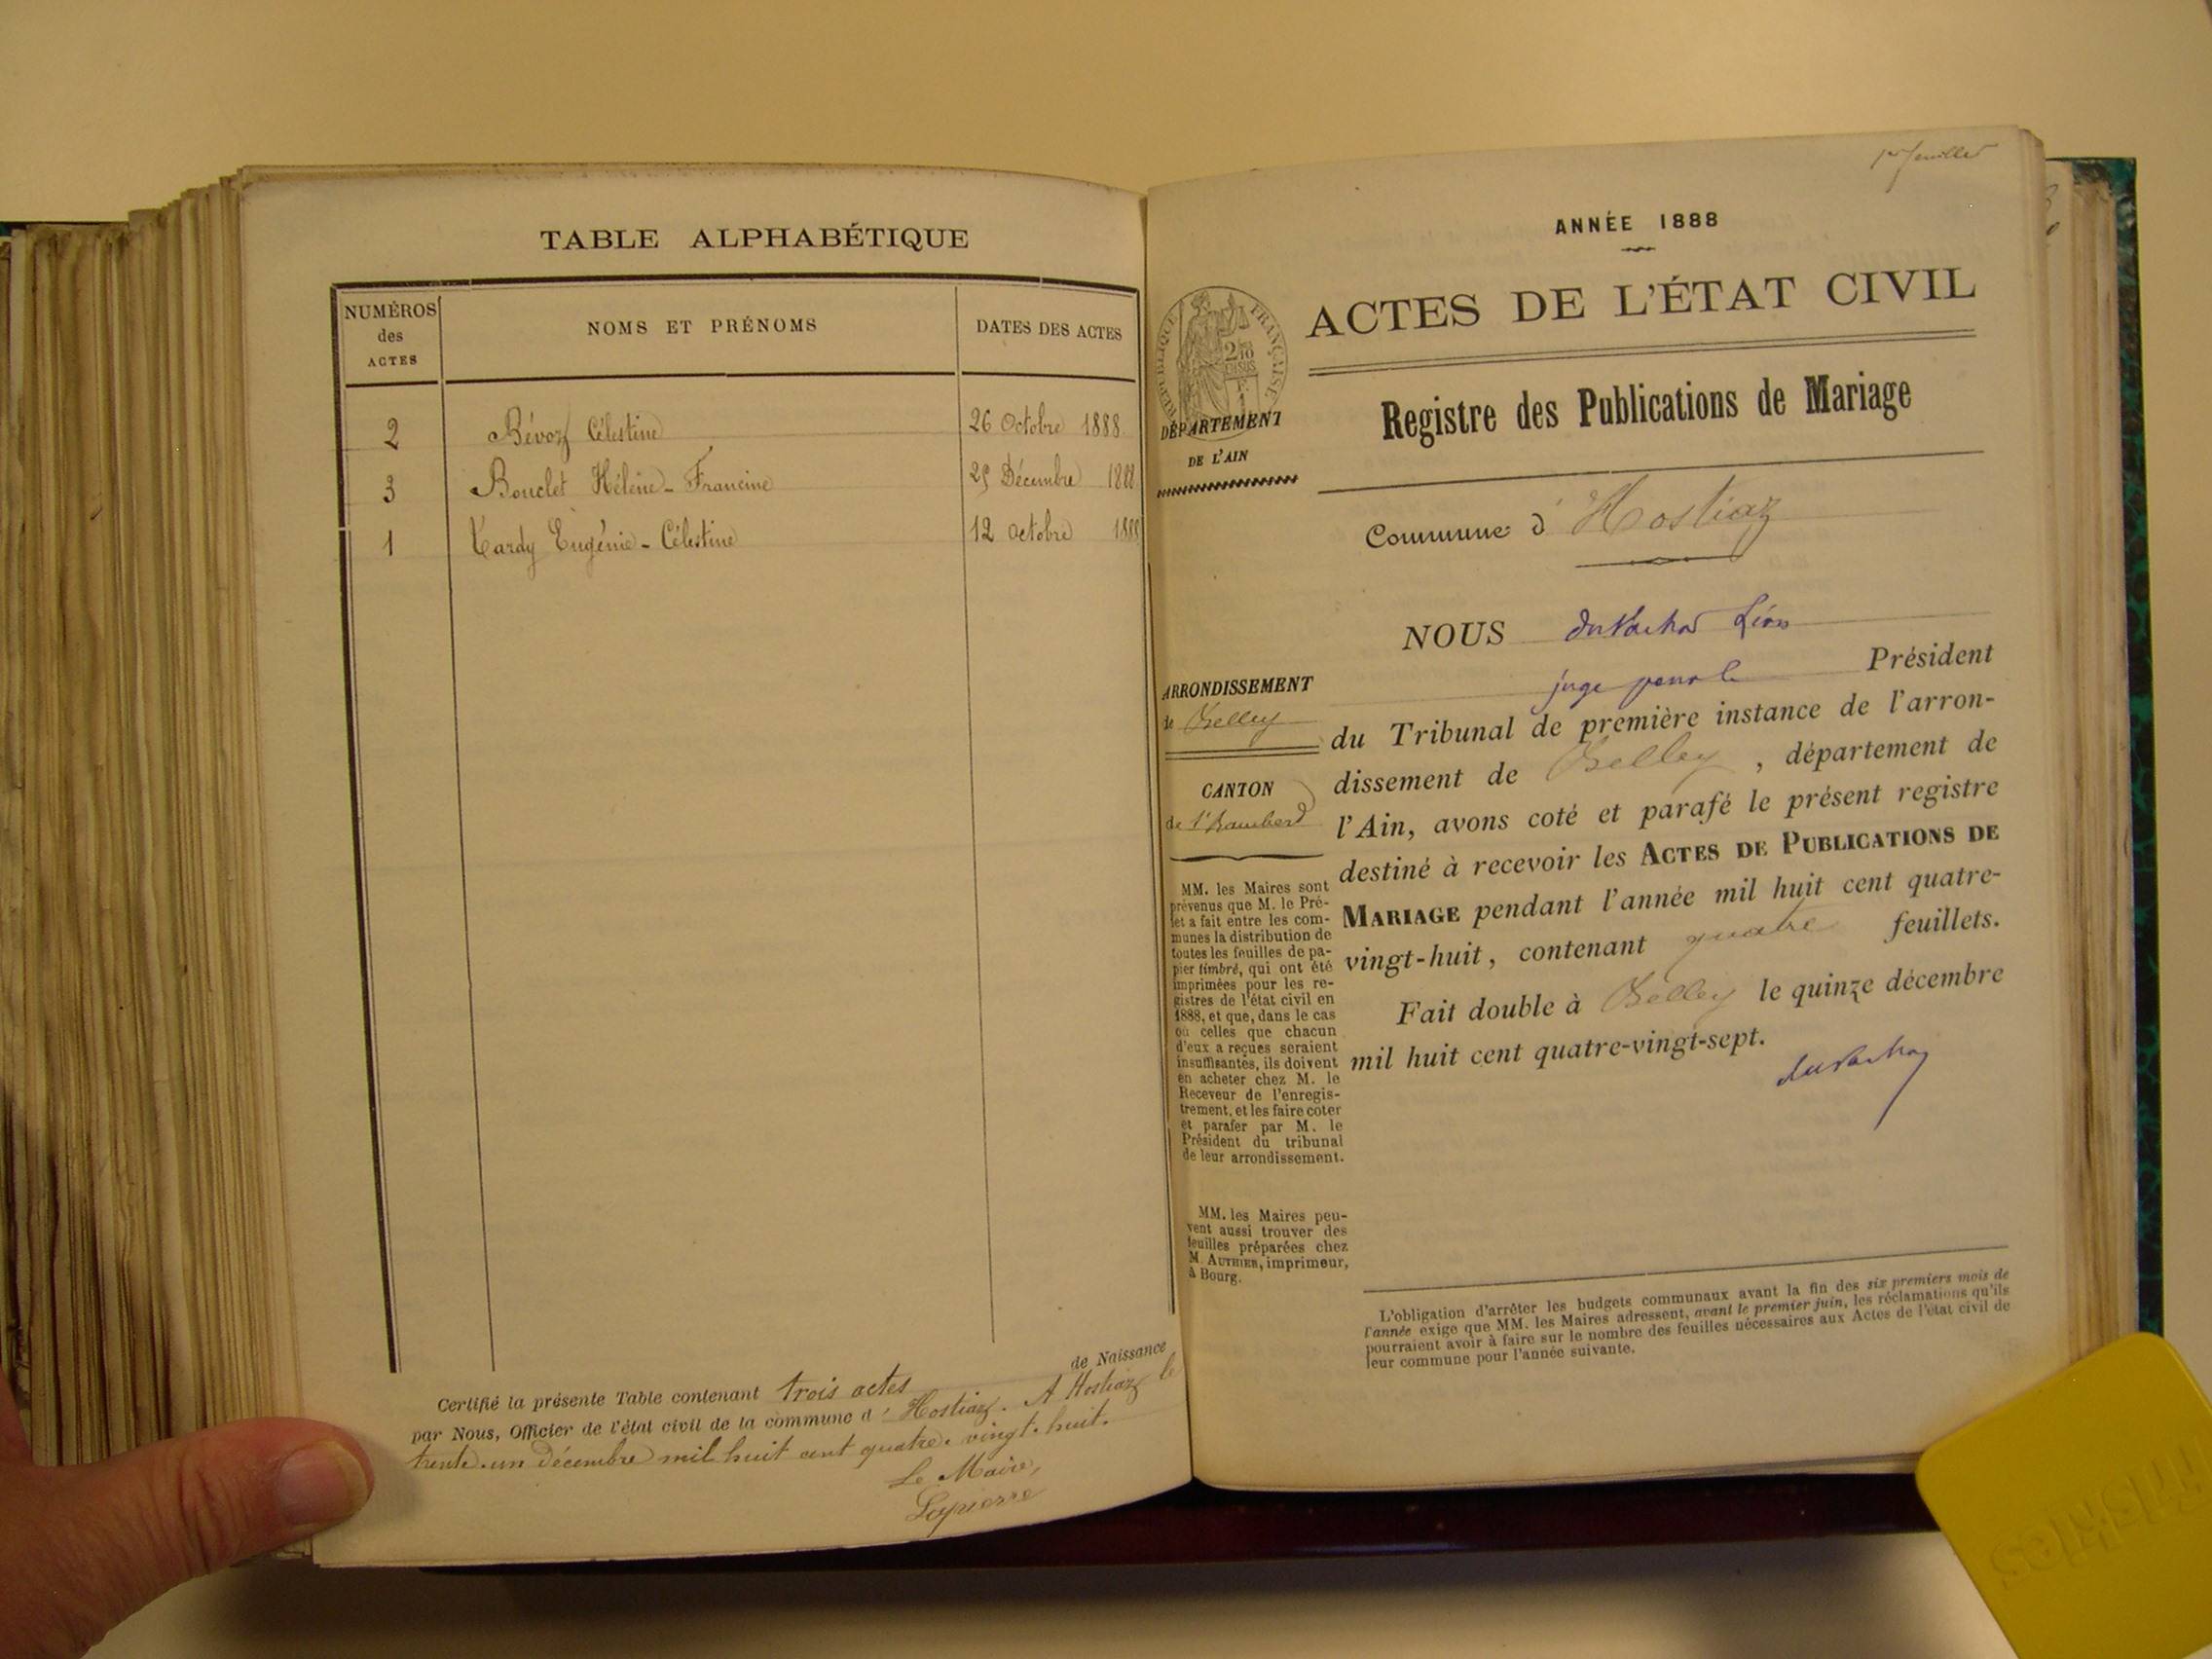 TABLE ALPHABÉTIQUE
NUMÉROS des ACTES
NOMS ET PRÉNOMS
DATES DES ACTES
2 Bévoz Célestine 26 Octobre 1888
3 Bouclet Hélène-Francine 25 Décembre 1888
1 Tardy Eugénie-Célestine 12 octobre 1888
de Naissance
Certifié la présente Table contenant trois actes
par Nous, Officier de l'état civil de la commune d'Hostiaz. A Hostiaz le
trente-un Décembre mil huit cent quatre-vingt-huit.
Le Maire,
Lapierre
1er feuillet
ANNÉE 1888
ACTES DE L'ÉTAT CIVIL
RÉPUBLIQUE FRANÇAISE
2/10 EN SUS
DÉPARTEMENT
DE L'AIN
Registre des Publications de Mariage
Commune d'Hostiaz
NOUS Léon
juge pour le Président
du Tribunal de première instance de l'arron-
dissement de Belley, département de
l'Ain, avons coté et parafé le présent registre
destiné à recevoir les ACTES DE PUBLICATIONS DE
MARIAGE pendant l'année mil huit cent quatre-
vingt-huit, contenant quatre feuillets.
Fait double à Belley le quinze décembre
mil huit cent quatre-vingt-sept.
ARRONDISSEMENT
de Belley
CANTON
de St Rambert
MM. les Maires sont
prévenus que M. le Pré-
fet a fait entre les com-
munes la distribution de
toutes les feuilles de pa-
pier timbré, qui ont été
imprimées pour les re-
gistres de l'état civil en
1888, et que, dans le cas
où celles que chacun
d'eux a reçues seraient
insuffisantes, ils doivent
en acheter chez M. le
Receveur de l'enregis-
trement, et les faire coter
et parafer par M. le
Président du tribunal
de leur arrondissement.
MM. les Maires peu-
vent aussi trouver des
feuilles préparées chez
M. AUTHIER, imprimeur,
à Bourg.
L'obligation d'arrêter les budgets communaux avant la fin des six premiers mois de
l'année exige que MM. les Maires adressent, avant le premier juin, les réclamations qu'ils
pourraient avoir à faire sur le nombre des feuilles nécessaires aux Actes de l'état civil de
leur commune pour l'année suivante.